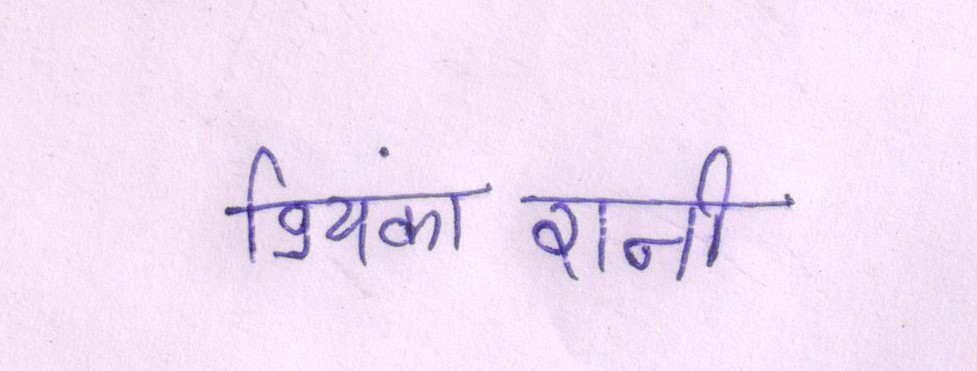 प्रियंका रानी